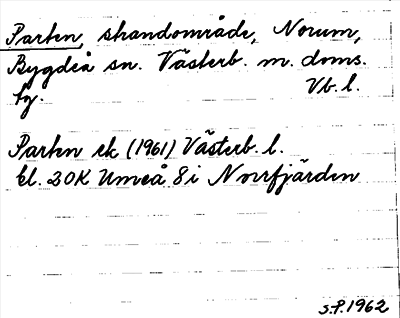 Parten, strandområde, Norum,
Bygdeå sn. Västerb. m. doms.
tg. Vb. l.
Parten ek (1961) Västerb. l.
bl. 20K Umeå 8 i Norrfjärden
S.P. 1962